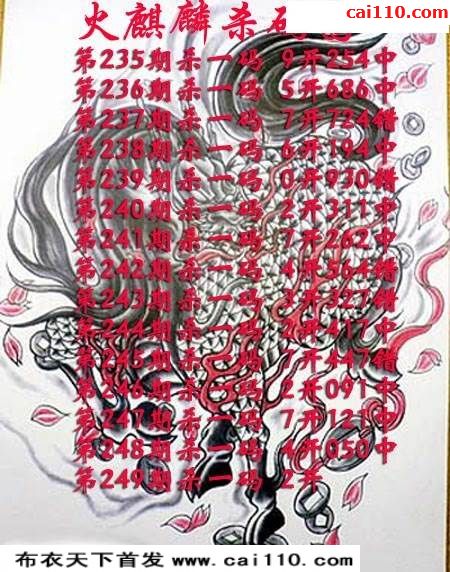 cai110.com
火麒麟杀
第235期杀一码 9开254中
第236期杀一码 5开686中
第237期杀一码 7开724错
第238期杀一码 6开194中
第239期杀一码 0开930错
第240期杀一码 2开311中
第241期杀一码 7开262中
第242期杀一码 4开564错
第243期杀一码 3开327错
第244期杀一码 2开417中
第245期杀一码 1开447错
第246期杀一码 2开091中
第247期杀一码 7开121中
第248期杀一码 4开050中
第249期杀一码 2开
布衣天下首发 www.cai110.com